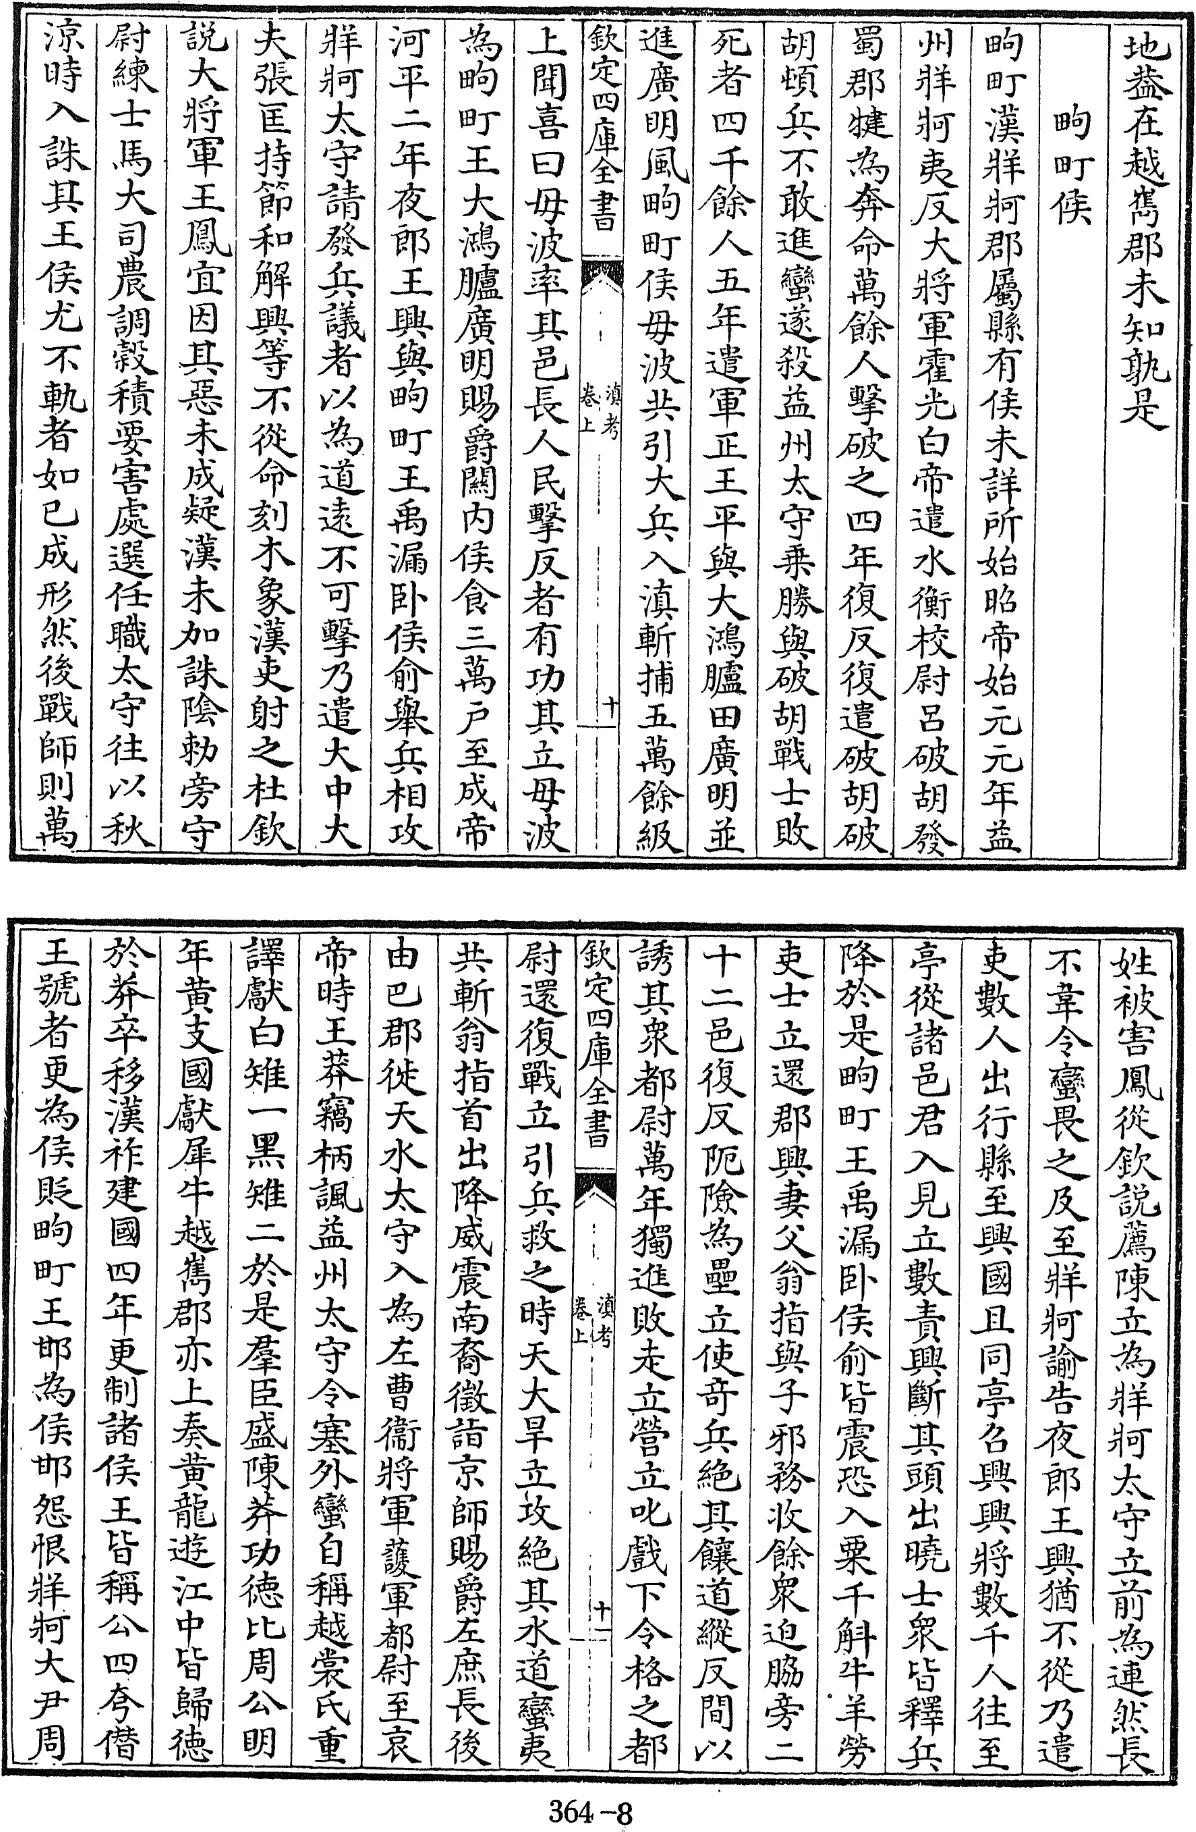 地葢在越嶲郡未知孰是
畇町侯
畇町漢牂牁郡屬縣有侯未詳所始昭帝始元元年益
州牂牁夷反大將軍霍光白帝遣水衡校尉呂破胡發
蜀郡犍為奔命萬餘人擊破之四年復反復遣破胡破
胡頓兵不敢進蠻遂殺益州太守乗勝與破胡戰士敗
死者四千餘人五年遣軍正王平與大鴻臚田廣明並
進廣明風畇町侯毋波共引大兵入滇斬捕五萬餘級
欽定四庫全書
滇考
卷上
十
上聞喜曰毋波率其邑長人民擊反者有功其立毋波
為畇町王大鴻臚廣明賜爵關内侯食三萬户至成帝
河平二年夜郎王興與畇町王禹漏卧侯俞舉兵相攻
牂牁太守請發兵議者以為道遠不可擊乃遣大中大
夫張匡持節和解興等不從命刻木象漢吏射之杜欽
説大將軍王鳳宜因其惡未成疑漢未加誅隂勅旁守
尉練士馬大司農調穀積要害處選任職太守往以秋
涼時入誅其王侯尤不軌者如已成形然後戰師則萬
姓被害鳳從欽説薦陳立為牂牁太守立前為連然長
不韋令蠻畏之及至牂牁諭告夜郎王興猶不從乃遣
吏數人出行縣至興國且同亭召興興將數千人往至
亭從諸邑君入見立數責興斷其頭出曉士衆皆釋兵
降於是畇町王禹漏卧侯俞皆震恐入粟千斛牛羊勞
吏士立還郡興妻父翁指與子邪務收餘衆迫脇旁二
十二邑復反阨險為壘立使竒兵絶其饟道縱反間以
誘其衆都尉萬年獨進敗走立營立叱戲下令格之都
欽定四庫全書
滇考
卷上
十一
尉還復戰立引兵救之時天大旱立攻絶其水道蠻夷
共斬翁指首出降威震南裔徵詣京師賜爵左庶長後
由巴郡徙天水太守入為左曹衞將軍護軍都尉至哀
帝時王莽竊柄諷益州太守令塞外蠻自稱越裳氏重
譯獻白雉一黑雉二於是羣臣盛陳莽功德比周公明
年黄支國獻犀牛越嶲郡亦上奏黄龍遊江中皆歸徳
於莽卒移漢祚建國四年更制諸侯王皆稱公四夸僭
王號者更為侯貶畇町王邯為侯邯怨恨牂牁大尹周
364-8